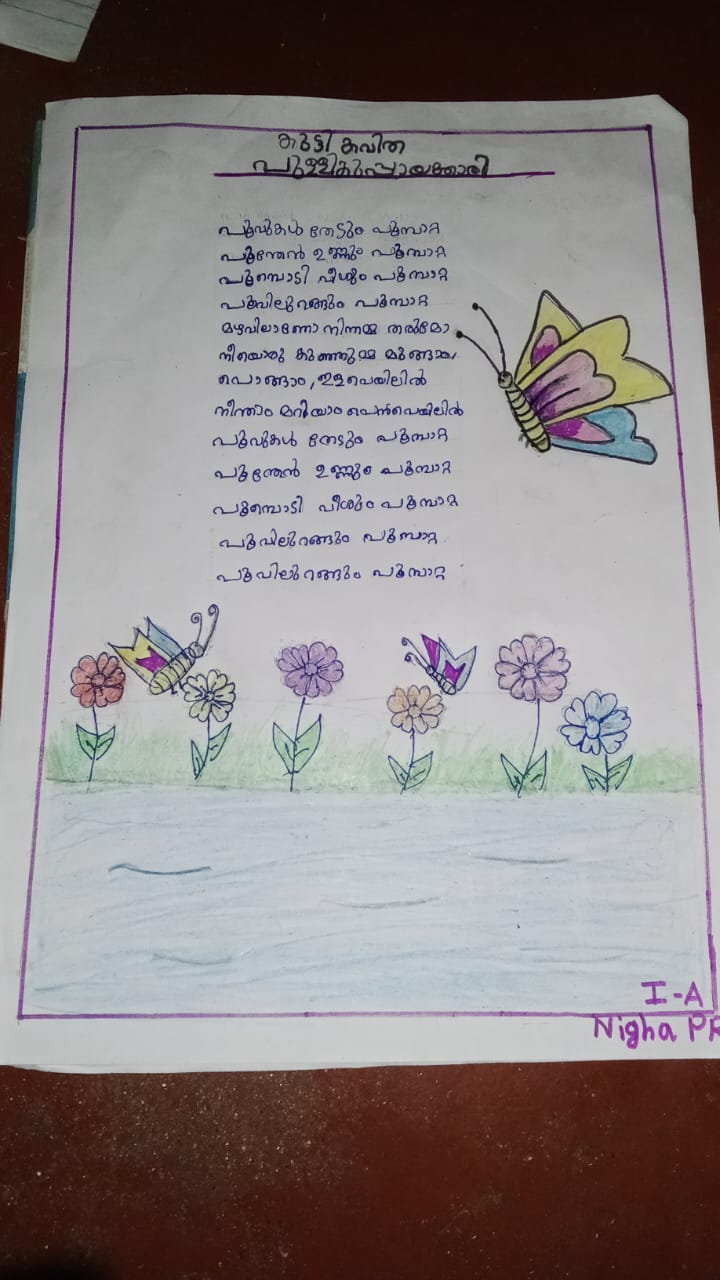 കുട്ടി കവിത
പുള്ളികുപ്പായക്കാരി
പൂവുകൾ തേടും പൂമ്പാറ്റ
പൂന്തേൻ ഉണ്ണും പൂമ്പാറ്റ
പൂമ്പൊടി വീശും പൂമ്പാറ്റ
പൂവിലുറങ്ങും പൂമ്പാറ്റ
മഴവിലാണോ നിന്നമ്മ തരുമോ
നീയൊരു കുഞ്ഞുമ്മ
പൊങ്ങാം, ഇളവെയിലിൽ
നീന്താം മറിയാം പൊൻവെയിലിൽ
പൂവുകൾ തേടും പൂമ്പാറ്റ
പൂന്തേൻ ഉണ്ണും പൂമ്പാറ്റ
പൂമ്പൊടി വീശും പൂമ്പാറ്റ
പൂവിലുറങ്ങും പൂമ്പാറ്റ
പൂവിലുറങ്ങും പൂമ്പാറ്റ
I-A
Nigha PR